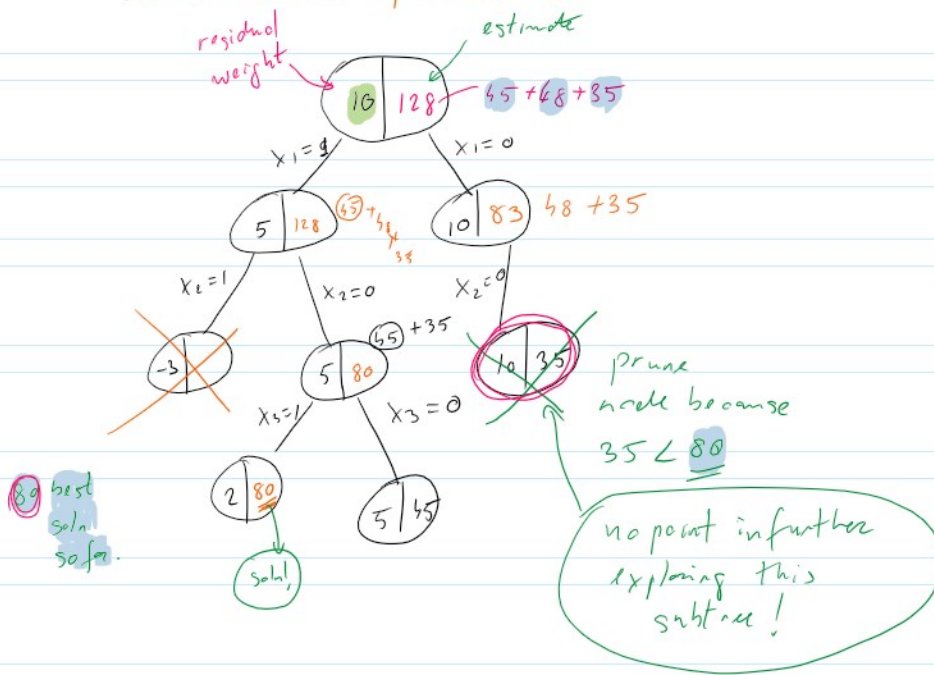 residual
weight
estimate
10 | 128
45 + 48 + 35
x1=1
x1=0
5 | 128
45 + 48 + 35
10 | 83
48 + 35
x2=1
x2=0
x2=0
-3
5 | 80
45 + 35
10 | 35
prune
node because
35 < 80
x3=1
x3=0
2 | 80
5 | 45
80 best
soln
so far.
soln!
no point in further
exploring this
subtree!